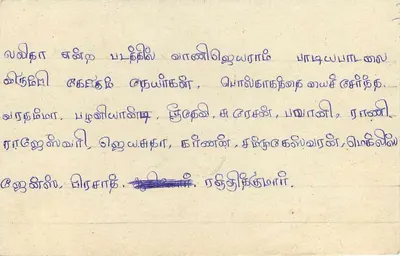 லலிதா என்ற படத்தில் வாணிஜெயராம் பாடியபாடலை
விரும்பி கேட்கும் நேயர்கள். பொல்காகந்தையைச் சேர்ந்த.
வரதம்மா. பழனியாண்டி, ஸ்ரீதேவி, சுரேசன், பவானி, ராணி
ராஜேஸ்வரி, ஜெயசுதா, கர்ணன், சண்முகேஸ்வரன்,
ஜேன்ஸ், பிரசாத். ரஞ்சித்குமார்.